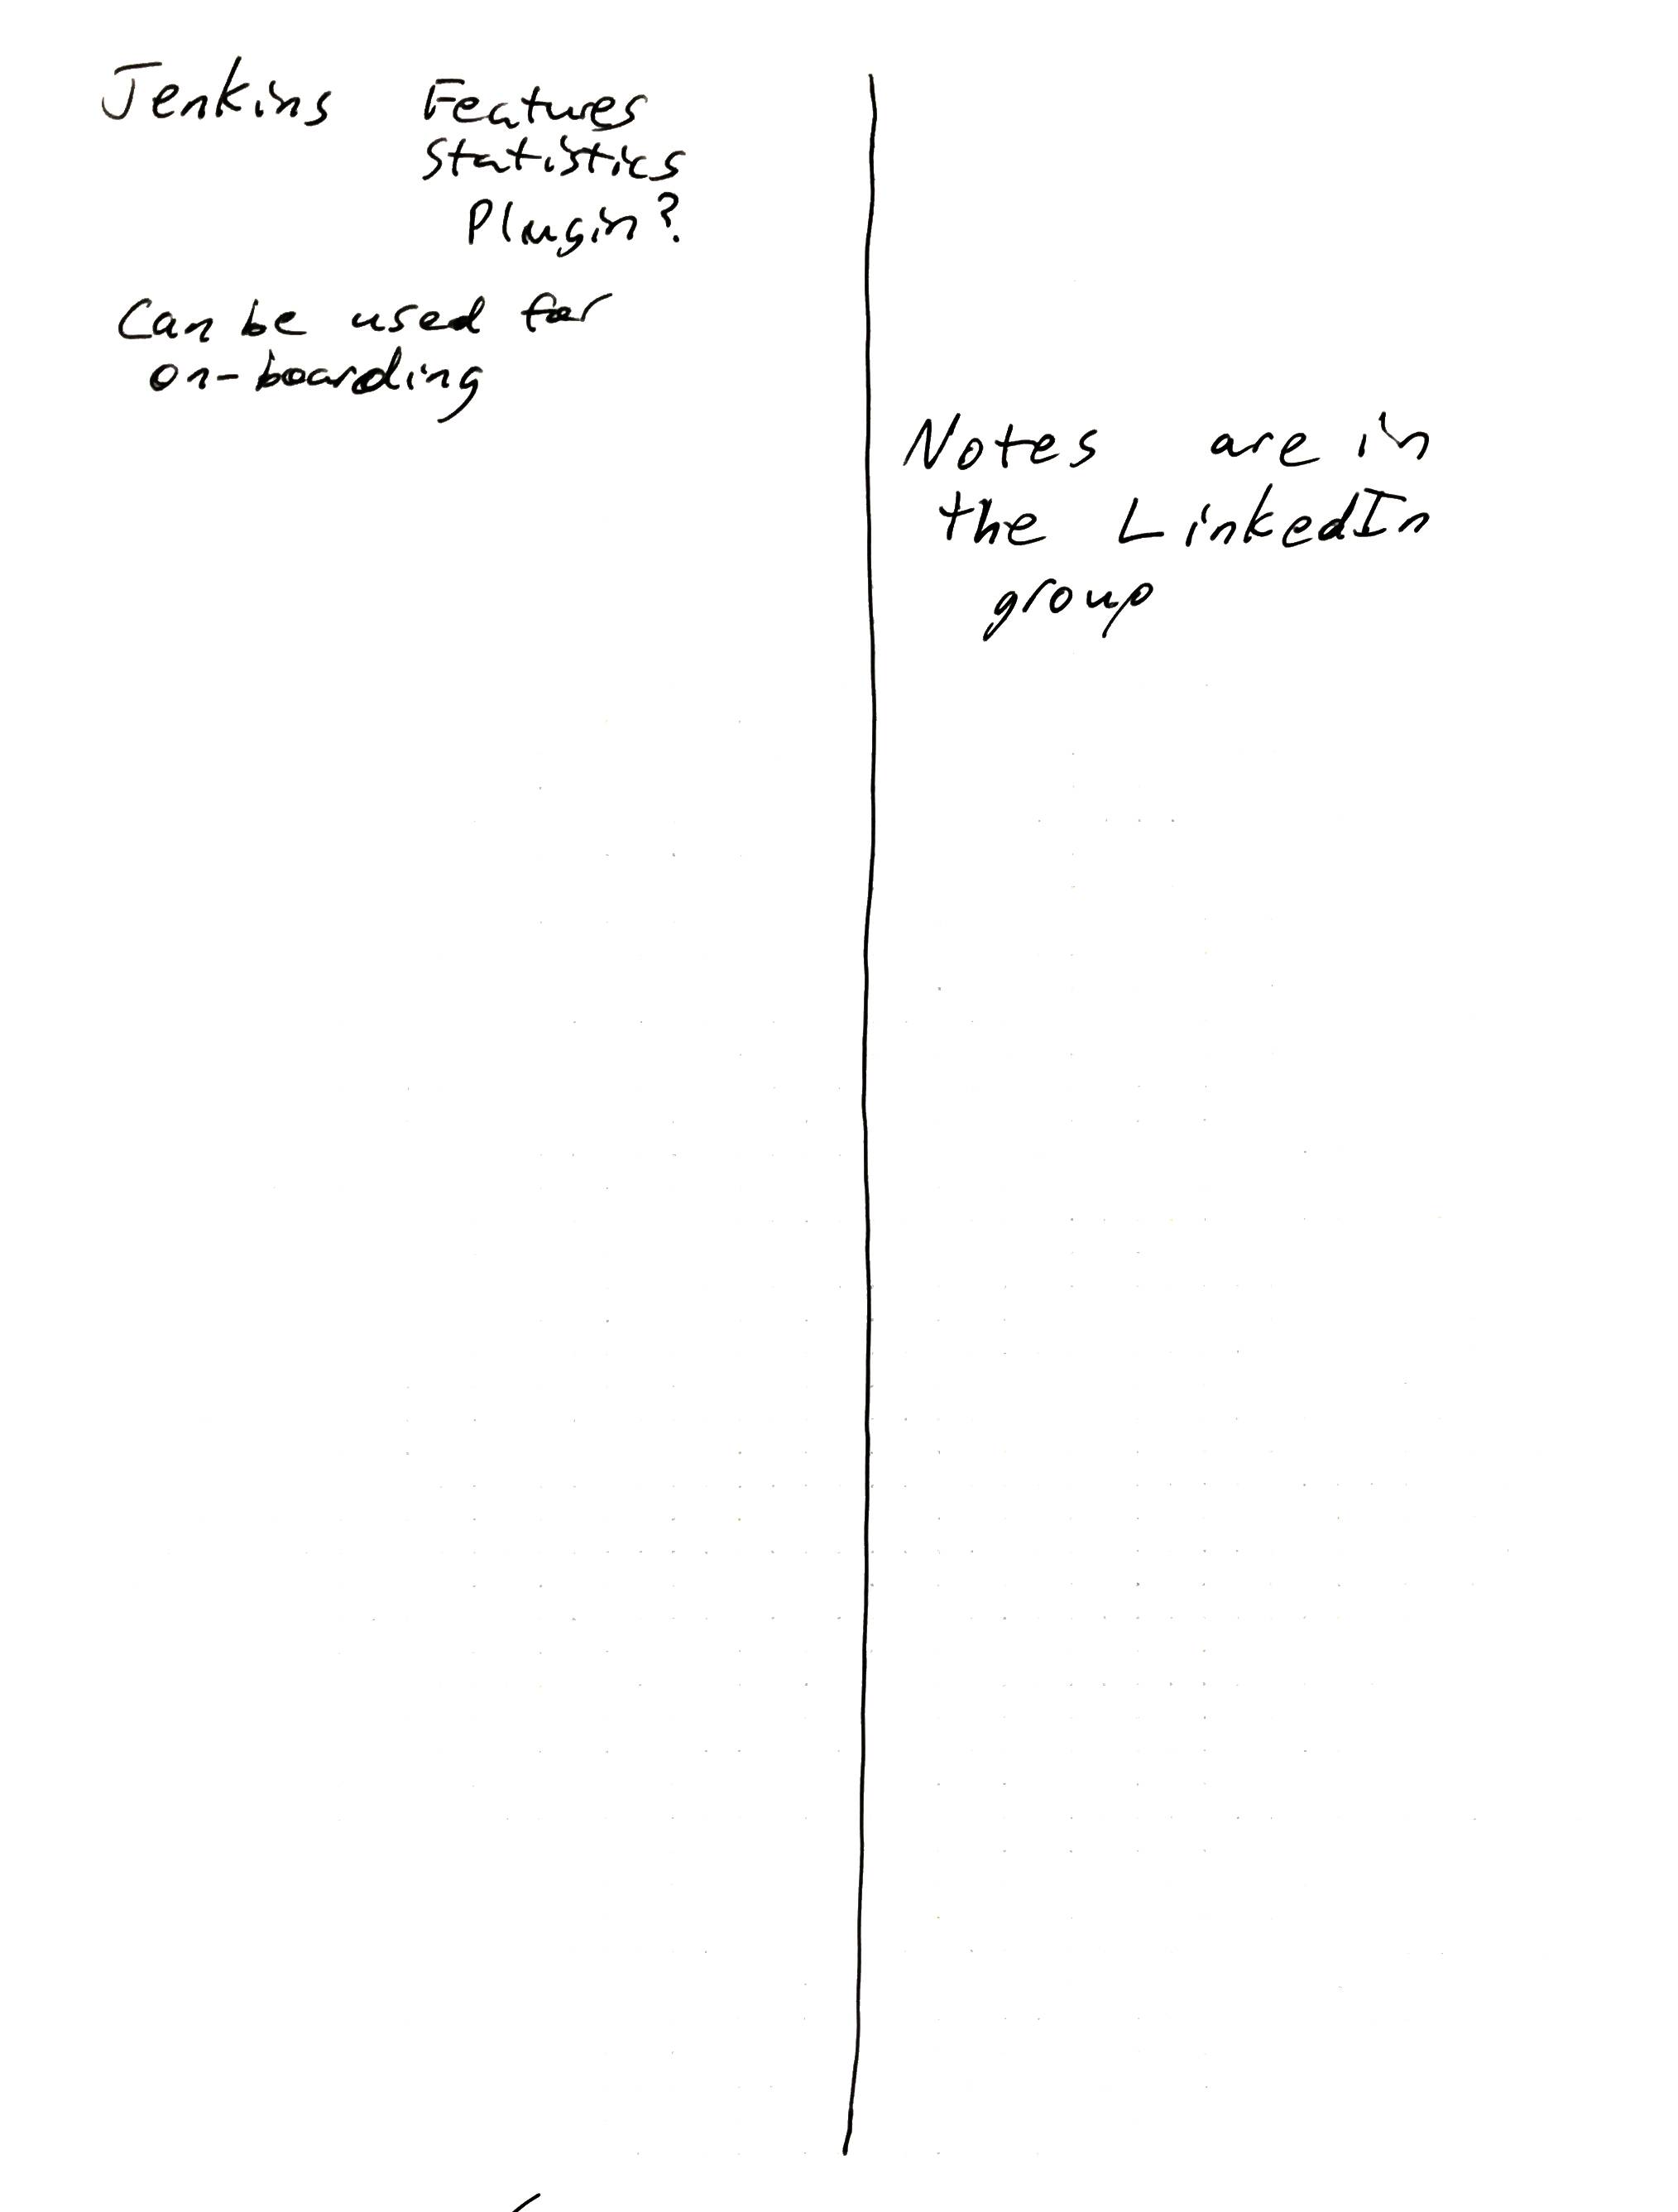 Jenkins Features
Statistics
Plugin?
Can be used for
on-boarding
Notes are in
the LinkedIn
group